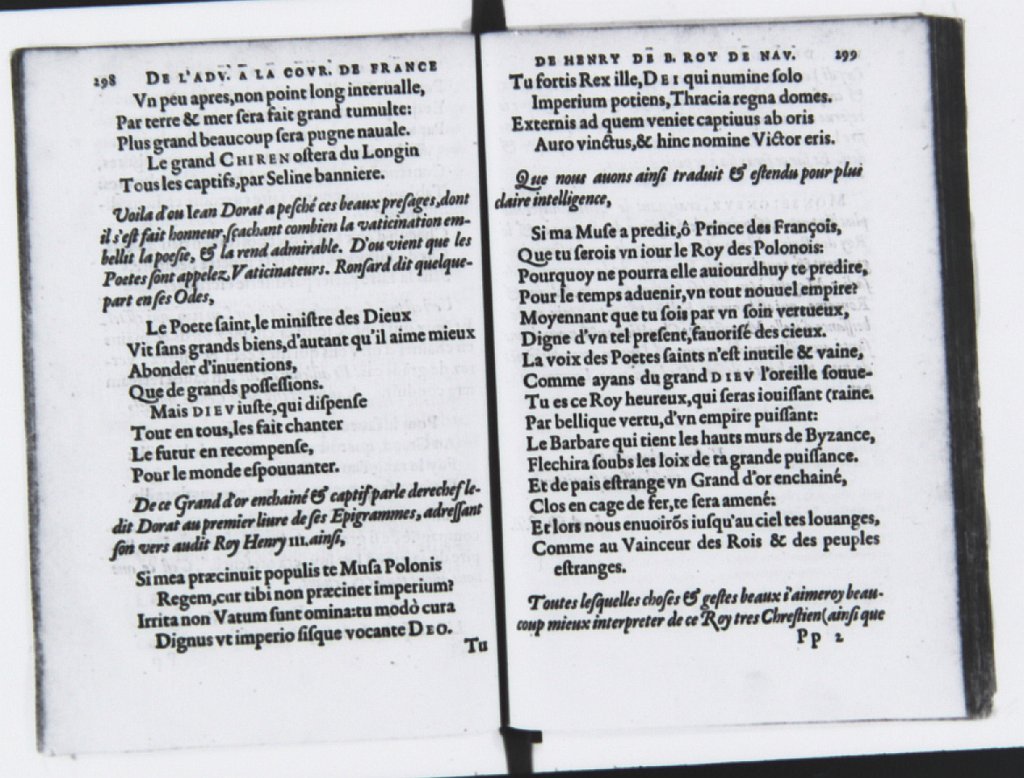 298 DE L'ADV. A LA COVR. DE FRANCE
Vn peu apres, non point long interualle,
Par terre & mer ſera fait grand tumulte:
Plus grand beaucoup ſera pugne nauale.
Le grand CHIREN oſtera du Longin
Tous les captifs, par Seline banniere.
Voila d'ou Iean Dorat a peſché ces beaux preſages, dont
il s'eſt fait honneur, ſçachant combien la vaticination em-
bellit la poeſie, & la rend admirable. D'ou vient que les
Poetes ſont appelez Vaticinateurs. Ronſard dit quelque-
part en ſes Odes,
Le Poete ſaint, le miniſtre des Dieux
Vit ſans grands biens, d'autant qu'il aime mieux
Abonder d'inuentions,
Que de grands poſſeſſions.
Mais DIEV iuſte, qui diſpenſe
Tout en tous, les fait chanter
Le futur en recompenſe,
Pour le monde eſpouuanter.
De ce Grand d'or enchainé & captif parle derechef le-
dit Dorat au premier liure de ſes Epigrammes, adreſſant
ſon vers audit Roy Henry III. ainſi,
Si mea præcinuit populis te Muſa Polonis
Regem, cur tibi non præcinet imperium?
Irrita non Vatum ſunt omina: tu modò cura
Dignus vt imperio ſiſque vocante DEO.
Tu
DE HENRY DE B. ROY DE NAV. 299
Tu fortis Rex ille, DEI qui numine ſolo
Imperium potiens, Thracia regna domes.
Externis ad quem veniet captiuus ab oris
Auro vinctus, & hinc nomine Victor eris.
Que nous auons ainſi traduit & eſtendu pour plus
claire intelligence,
Si ma Muſe a predit, ô Prince des François,
Que tu ſerois vn iour le Roy des Polonois:
Pourquoy ne pourra elle auiourdhuy te predire,
Pour le temps aduenir, vn tout nouuel empire?
Moyennant que tu ſois par vn ſoin vertueux,
Digne d'vn tel preſent, fauoriſé des cieux.
La voix des Poetes ſaints n'eſt inutile & vaine,
Comme ayans du grand DIEV l'oreille ſouue-
Tu es ce Roy heureux, qui ſeras iouiſſant (raine.
Par bellique vertu, d'vn empire puiſſant:
Le Barbare qui tient les hauts murs de Byzance,
Flechira ſoubs les loix de ta grande puiſſance.
Et de pais eſtrange vn Grand d'or enchainé,
Clos en cage de fer, te ſera amené:
Et lors nous enuoirõs iuſqu'au ciel tes louanges,
Comme au Vainceur des Rois & des peuples
eſtranges.
Toutes leſquelles choſes & geſtes beaux i'aimeroy beau-
coup mieux interpreter de ce Roy tres Chreſtien (ainſi que
Pp 2